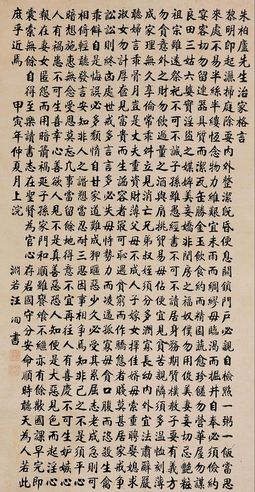 朱柏盧先生治家格言
黎明即起灑掃庭除要內外整潔既昏便息關鎖門戶必親自檢點一粥一飯當思
來處不易半絲半縷恆念物力維艱宜未雨而綢繆毋臨渴而掘井自奉必須儉約
宴客切勿留連器具質而潔瓦缶勝金玉飲食約而精園蔬愈珍饈勿營華屋勿謀
良田三姑六婆實淫盜之媒婢美妾嬌非閨房之福奴僕勿用俊美妻妾切忌艷粧
祖宗雖遠祭祀不可不誠子孫雖愚經書不可不讀居身務期質樸教子要有義方
勿貪意外之財勿飲過量之酒與肩挑貿易毋佔便宜見貧苦親鄰須加溫恤刻薄
成家理無久享倫常乖舛立見消亡兄弟叔姪須分多潤寡長幼內外宜法肅辭嚴
聽婦言乖骨肉豈是丈夫重貲財薄父母不成人子嫁女擇佳婿毋索重聘娶媳求
淑女勿計厚奩見富貴而生諂容者最可恥遇貧窮而作驕態者賤莫甚居家戒爭
訟訟則終凶處世戒多言言多必失毋恃勢力而凌逼孤寡毋貪口腹而恣殺牲禽
乖僻自是悔誤必多頹惰自甘家道難成狎暱惡少久必受其累屈志老成急則可
相倚輕聽發言安知非人之譖愬當忍耐三思因事相爭焉知非己之不是須平心
暗想施惠無念受恩莫忘凡事當留餘地得意不宜再往人有喜慶不可生妒嫉心
人有禍患不可生喜幸心善欲人見不是真善惡恐人知便是大惡見色而起淫心
報在妻女匿怨而用暗箭禍延子孫家門和順雖饔飧不繼亦有餘歡國課早完即
囊橐無餘自得至樂讀書志在聖賢為官心存君國守分安命順時聽天為人若此
庶乎近焉 甲寅年仲夏月上浣 淵若汪洵書